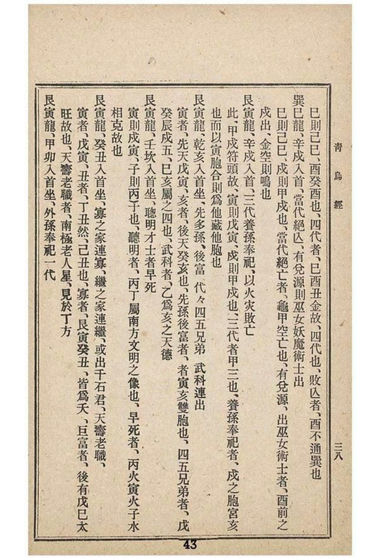 青烏經
三八
巳則己巳、酉癸酉也、四代者、巳酉丑金故、四代也、敗亾者、酉不通巽也
巽巳龍、辛戌入首、當代絶亾、有兌源則巫女妖魔術士出
巳則己巳、戌則甲戌也、當代絶亡者、龜甲空亡也、有兌源、出巫女術士者、酉前之
戌出、金空則鳴也
艮寅龍、辛戌入首、三代養孫奉祀、以火灾敗亡
此、甲戌符頭故、寅則戊寅、戌則甲戌也、三代者甲三也、養孫奉祀者、戌之胞宮亥
也而以寅胞合則爲他藏他胞也
艮寅龍、乾亥入首坐、先多孫、後富 代々四五兄弟 武科連出
寅者、先天戊寅、亥者、後天癸亥也、先孫後富者、者寅亥雙胞也、四五兄弟者、戊
癸辰戌五、巳亥屬之四也、武科者、乙爲亥之天德
艮寅龍、壬坎入首坐、聰明才士者早死
寅則戊寅、子則丙子也、聽明者、丙丁屬南方文明之像也、早死者、丙火寅火子水
相克故也
艮寅龍、癸丑入首坐、寡之家連寡、繼之家連繼、或出千石君、天壽老職、
寅者、戊寅、丑者、丁丑然、己丑也、寡者、艮寅癸丑、皆爲夭、巨富者、後有戊巳太
旺故也、天壽老職者、南極老人星、見於丁方
艮寅龍、甲卯入首坐、外孫奉祀一代
43